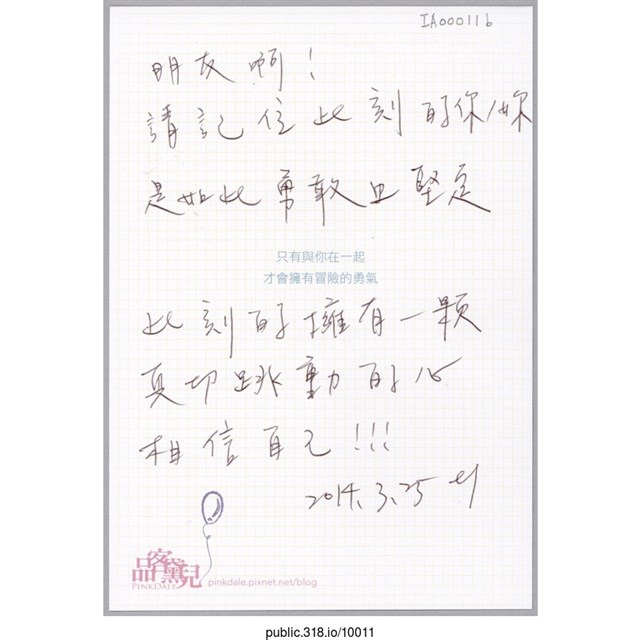 IA000116
朋友啊！
請記住此刻的你/妳
是如此勇敢且堅定
只有與你在一起
才會擁有冒險的勇氣
此刻的擁有一顆
真切跳動的心
相信自己!!!
2014.3.25
品客黛兒
PINKDALE
pinkdale.pixnet.net/blog
public.318.io/10011